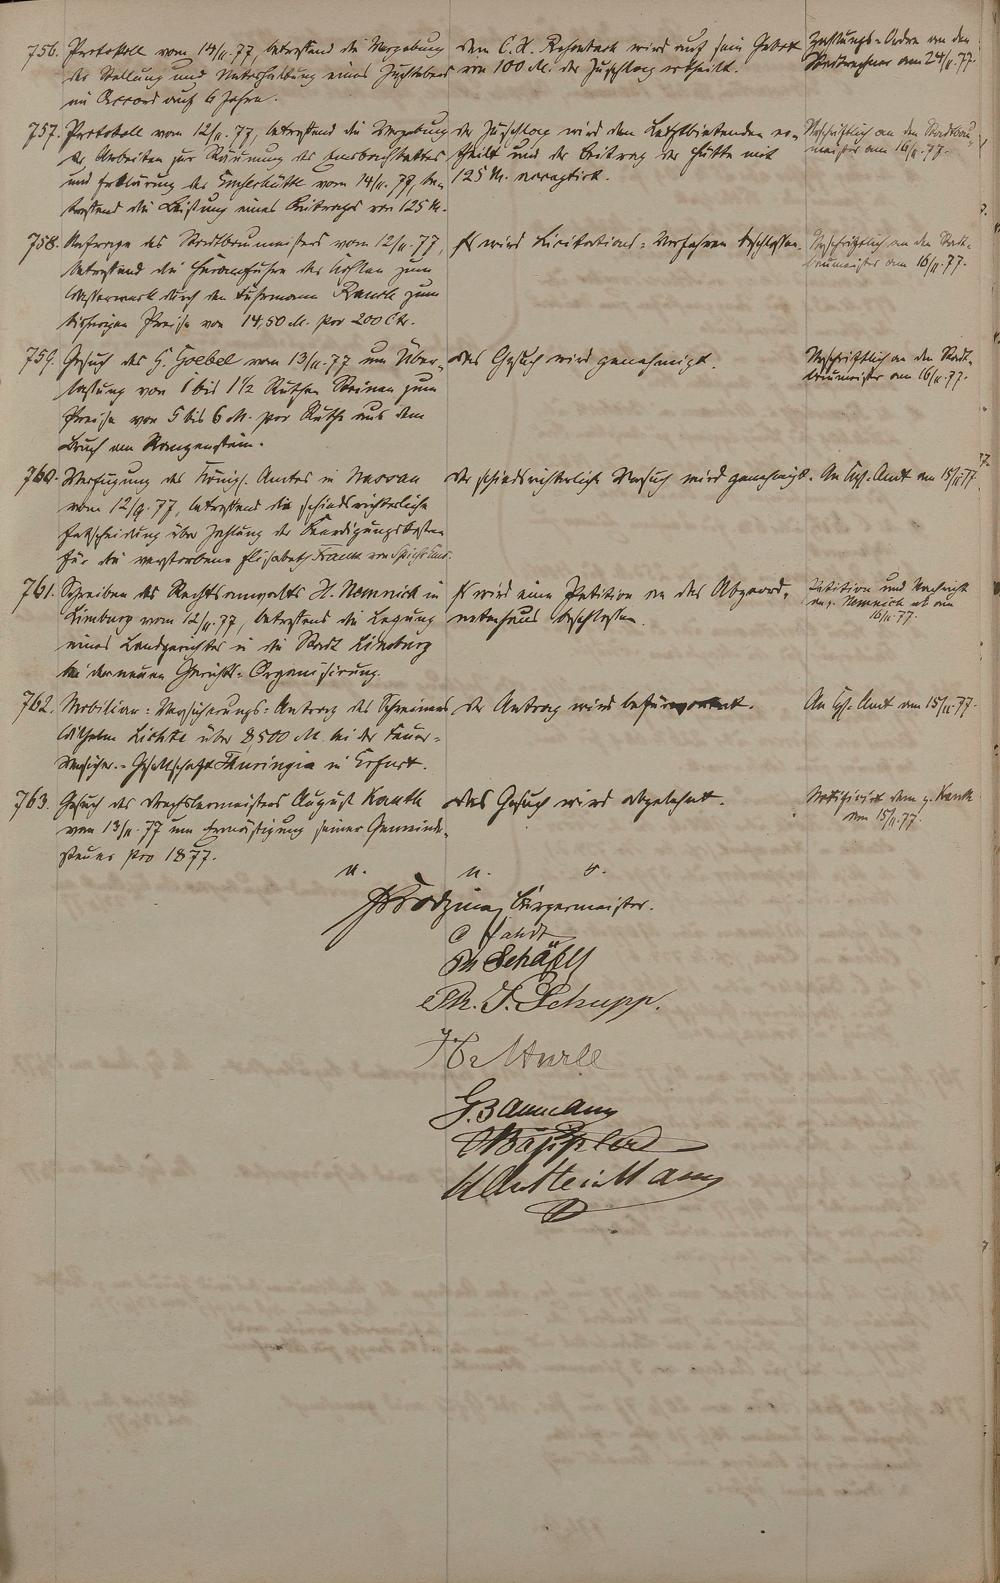 756. Protokoll vom 14/11.77, betreffend die Vergebung
der Stellung und Unterhaltung eines Zuchtebers
in Accord auf 6 Jahre.
Dem C. H. Rosenbach wird auf sein Gebot
von 100 M. der Zuschlag ertheilt.
Zahlungs-Ordre an den
Stadtrechner am 24/11.77.
757. Protokoll vom 12/11.77, betreffend die Vergebung
der Arbeiten zur Räumung des Emsbachbettes
und Erklärung der Emserhütte vom 14/11.77, be-
treffend die Leistung eines Beitrages von 125 M.
der Zuschlag wird dem Letztbietenden er-
theilt und der Beitrag der Hütte mit
125 M. acceptirt.
Abschriftlich an den Stadtbau-
meister am 16/11.77.
758. Anfrage des Stadtbaumeisters vom 12/11.77,
betreffend die Heranfuhre der Kohlen zum
Wasserwerk durch den Fuhrmann
bisherigen Preise von 14,50 M. per 200 Ctr.
Es wird Licitations-Verfahren beschlossen.
Abschriftlich an den Stadt-
baumeister am 16/11.77.
759. Gesuch des G. Goebel vom 13/11.77 um Über-
lassung von 1 bis 1½ Ruthen Steinen zum
Preise von 5 bis 6 M. per Ruthe aus dem
Bruch am
Das Gesuch wird genehmigt.
Abschriftlich an den Stadt-
baumeister am 16/11.77.
760. Verfügung des Königl. Amtes in
vom 12/9.77, betreffend die schiedsrichterliche
Entscheidung über Zahlung der Beerdigungskosten
für die verstorbene Elisabeth Frank von
Der schiedsrichterliche Versuch wird genehmigt.
An Kgl. Amt am 15/11.77
761. Schreiben des Rechtsanwalts H. Nemnich in
Limburg vom 12/11.77, betreffend die Legung
eines Landgerichtes in die Stadt Limburg
bei der neuen Gerichts-Organisirung.
Es wird eine Petition an das Abgeord-
netenhaus beschlossen.
Petition und Nachricht
an p. Nemnich ab am
16/11.77.
762. Mobiliar-Versicherungs-Antrag des Schreiners
Wilhelm Lichte über 8,500 M. bei der Feuer-
Versicher.-Gesellschaft Thuringia in Erfurt.
Der Antrag wird befürwortet.
An Kgl. Amt am 15/11.77.
763. Gesuch des Drechslermeisters August Kauth
vom 13/11.77 um Ermäßigung seiner Gemeinde-
steuer pro 1877.
Das Gesuch wird abgelehnt.
Notificirt dem p. Kauth
am 15/11.77.
u. u. o.
Bürgermeister.
Ph. J. Schupp.
G. Baumann